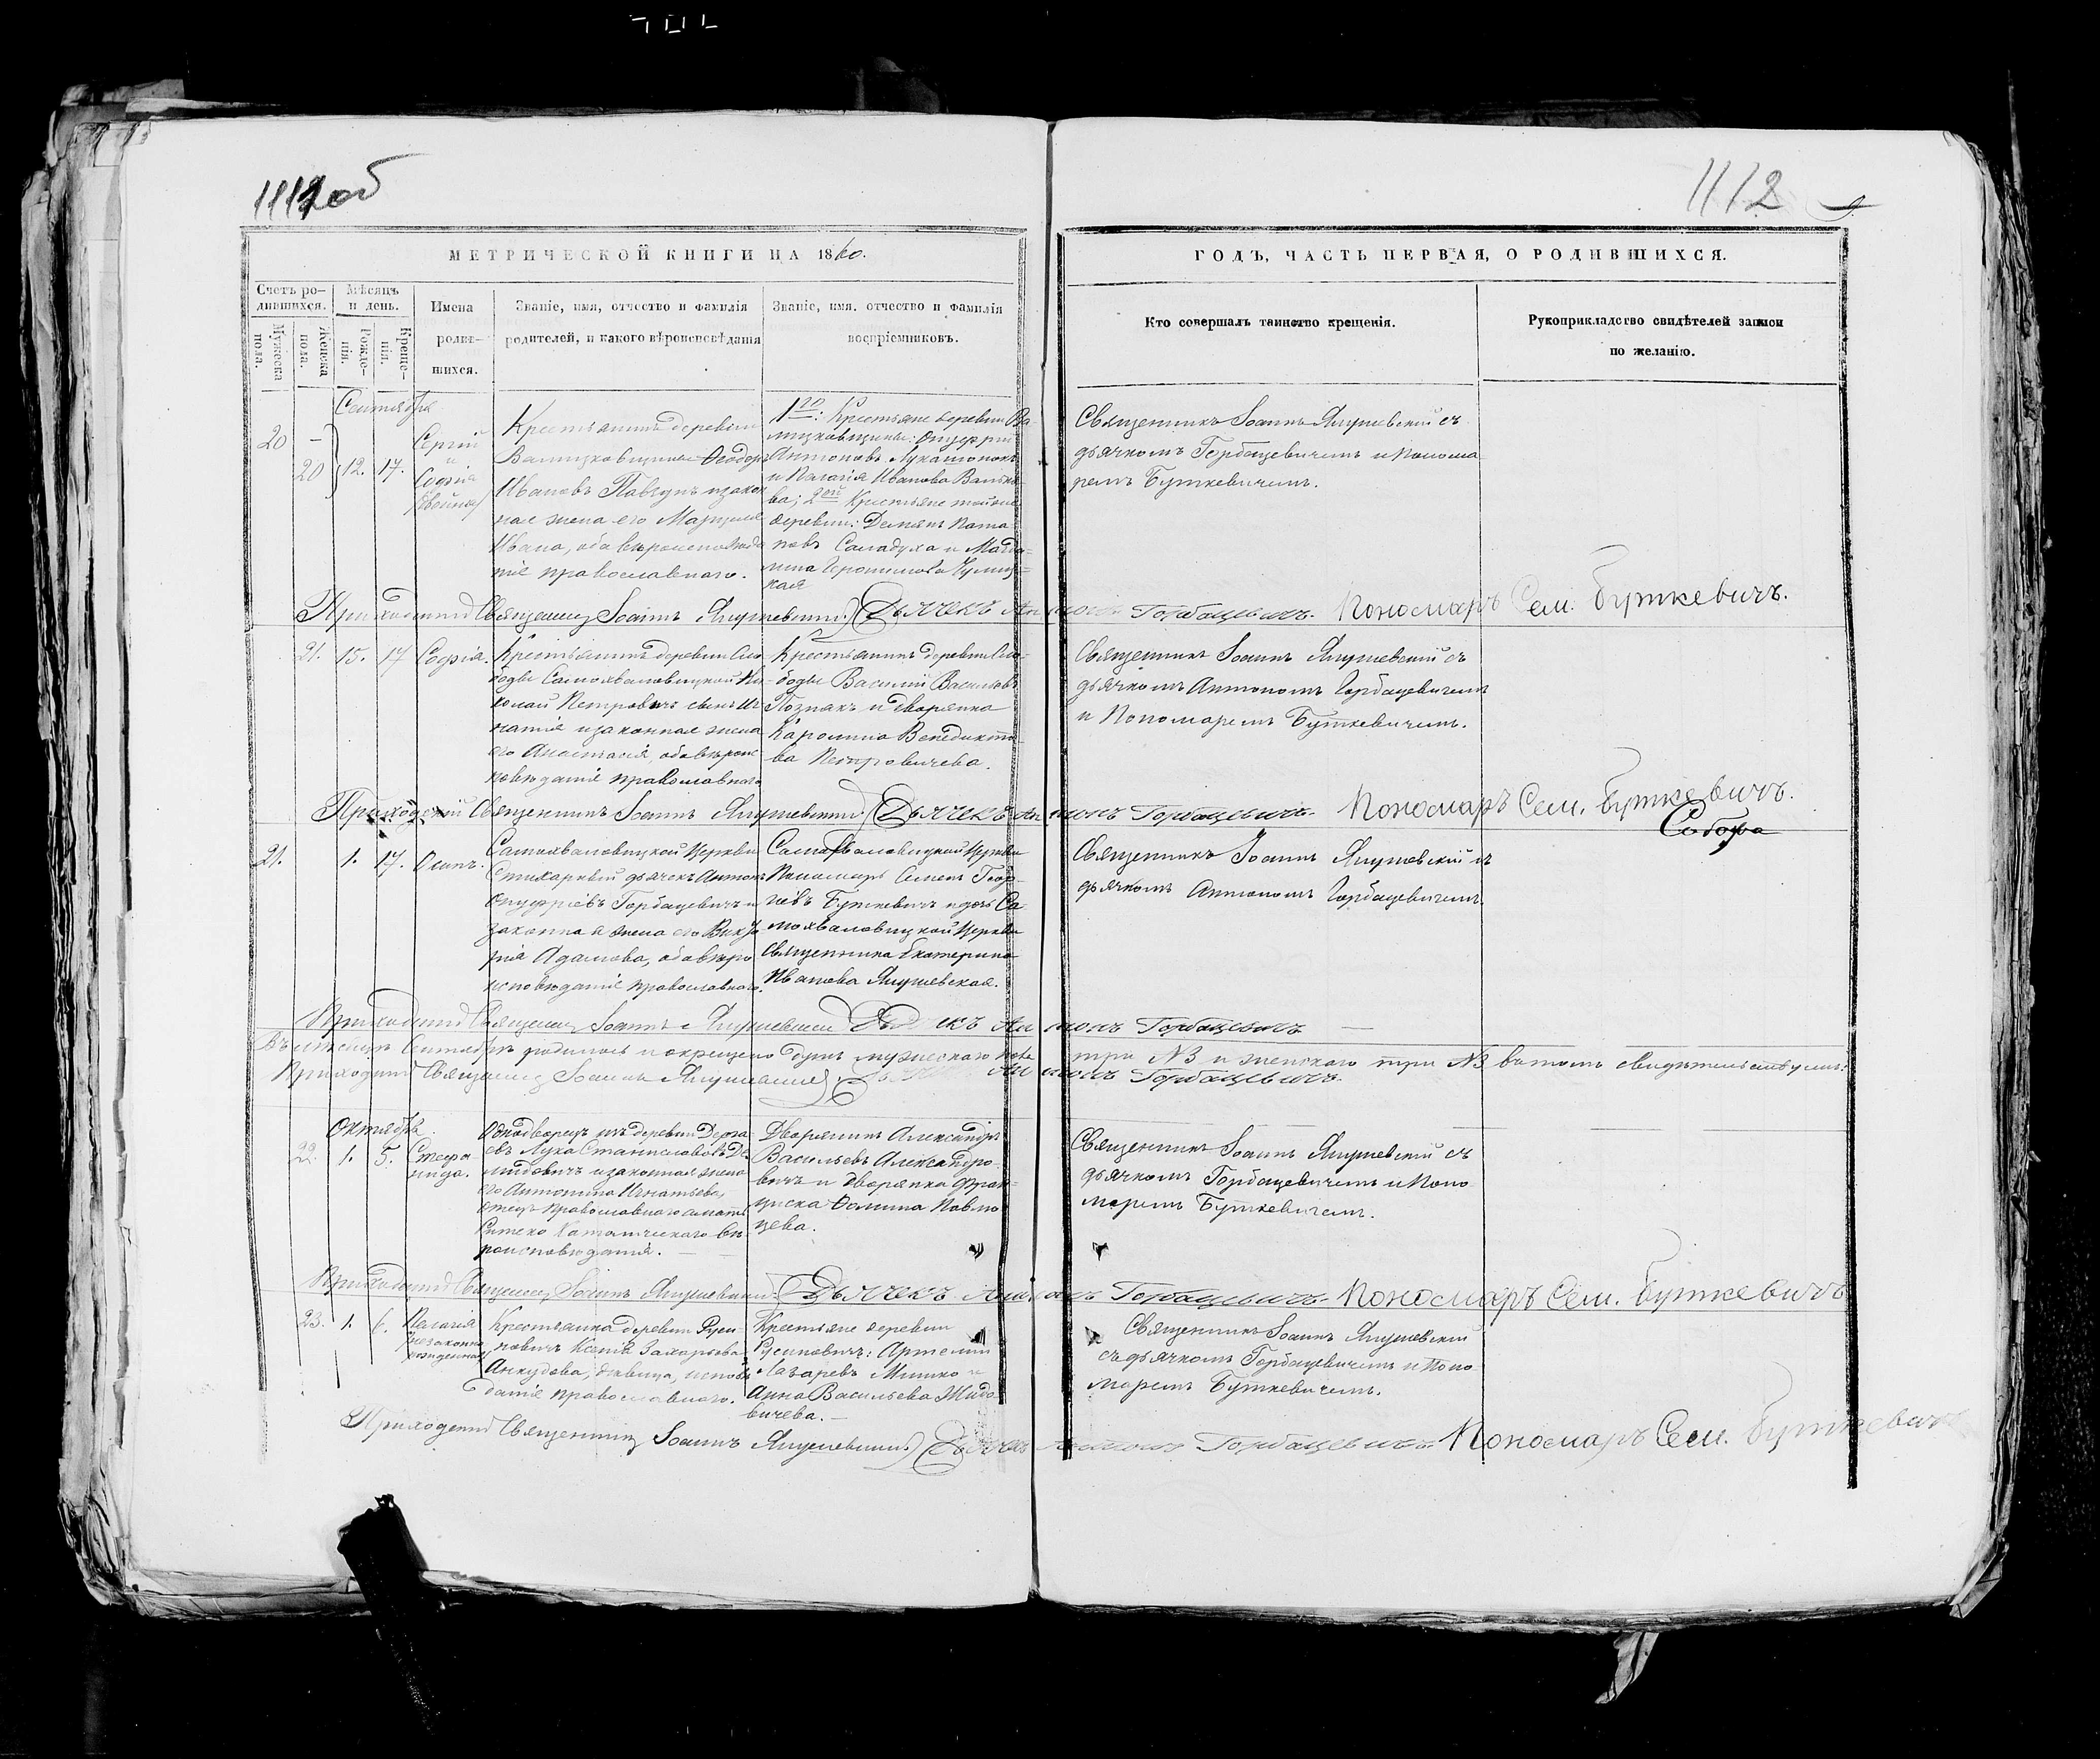 1112
МЕТРИЧЕСКОЙ КНИГИ НА 1860.
Счетъ ро-
дившихся.
Мужеска
пола.
Женска
пола.
Мѣсяцъ
и день.
Рожде-
нія.
Креще-
нія.
Имена
родив-
шихся.
Званіе, имя, отчество и фамилія
родителей, и какого вѣроисповѣданія
Званіе, имя, отчество и фамилія
воспріемниковъ.
ГОДЪ, ЧАСТЬ ПЕРВАЯ, О РОДИВШИХСЯ.
Кто совершалъ таинство крещенія.
Рукоприкладство свидѣтелей записи
по желанію.
Сентября
20 –
20
12. 17.
Сергій
и
Софія
Крестьянинъ деревни
Ѳеодоръ
Ивановъ
жена его
Ивана, оба вѣроисповѣда
ніе православнаго.
Крестьяне деревни
Антоновъ
и Пелагія Иванова
ва; Крестьяне той же
деревни: Демянъ
новъ Саладуха и Магда-
лина
Священникъ Іоаннъ Янушевскій съ
дьячкомъ Горбацевичемъ и понома-
ремъ Буткевичемъ.
Приходскій Священникъ Іоаннъ Янушевскій. Дьячекъ Антонъ Горбацевичъ. Пономаръ Сем. Буткевичъ.
21. 15. 17 Софія.
Крестьянинъ деревни Сло-
боды Самохваловицкой Ни-
колай Петровъ сынъ Иг-
натія и законная жена
его Анастасія, оба вѣроис-
повѣданія православнаго
Крестьянинъ деревни Сло-
боды Василій Васильевъ
Познякъ и дворянка
Каролина Венедикто-
ва Петровичева.
Священникъ Іоаннъ Янушевскій съ
дьячкомъ Антономъ Горбацевичемъ
и Пономаремъ Буткевичемъ.
Приходскій Священникъ Іоаннъ Янушевскій. Дьячекъ Антонъ Горбацевичъ. Пономаръ Сем. Буткевичъ.
21. 1. 17. Осипъ.
Самохваловицкой Церкви
Стихарный дьячекъ Антонъ
Онуфріевъ Горбацевичъ и
законная жена его Викто
рія Адамова, оба вѣро
исповѣданія православнаго.
Самохваловицкой Церкви
Пономарь Семенъ Геор-
гіевъ Буткевичъ и дочь Са-
мохваловицкой Церкви
Священника Екатерина
Иванова Янушевская.
Священникъ Іоаннъ Янушевскій съ
дьячкомъ Антономъ Горбацевичемъ.
Приходскій Священникъ Іоаннъ Янушевскій Дьячекъ Антонъ Горбацевичъ
Въ мѣсяцѣ Сентябрѣ родилось и окрещено душъ мужескаго пола три №3 и женскаго три №3 въ томъ свидѣтельствуемъ:
Приходскій Священникъ Іоаннъ Янушевскій. Дьячекъ Антонъ Горбацевичъ.
Октября
22. 1. 5. Стефа
нида.
Однодворецъ изъ деревни
Лука Станиславовъ Де-
мидовичъ и законная жена
его Антонина Игнатьева,
отецъ православнаго а мать
Римско Католическаго вѣ-
роисповѣданія.
Дворянинъ Александръ
Васильевъ Александро-
вичъ и дворянка Фран-
циска Ѳомина Павло
цева.
Священникъ Іоаннъ Янушевскій съ
дьячкомъ Горбацевичемъ и Поно
маремъ Буткевичемъ.
Приходскій Священникъ Іоаннъ Янушевскій. Дьячекъ Антонъ Горбацевичъ. Пономаръ Сем. Буткевичъ
23. 1. 6. Пелагія
незаконно
рожденная
Крестьянка деревни Руси
новичъ Ксенія Захарьева
Анкудова, дѣвица, исповѣ
данія православнаго.
Крестьяне деревни
Русиновичъ: Артемій
Лазаревъ Мишко и
Анна Васильева Жида
вичева.
Священникъ Іоаннъ Янушевскій
съ дьячкомъ Горбацевичемъ и Поно
маремъ Буткевичемъ.
Приходскій Священникъ Іоаннъ Янушевскій. Дьячекъ Антонъ Горбацевичъ. Пономаръ Сем. Буткевичъ